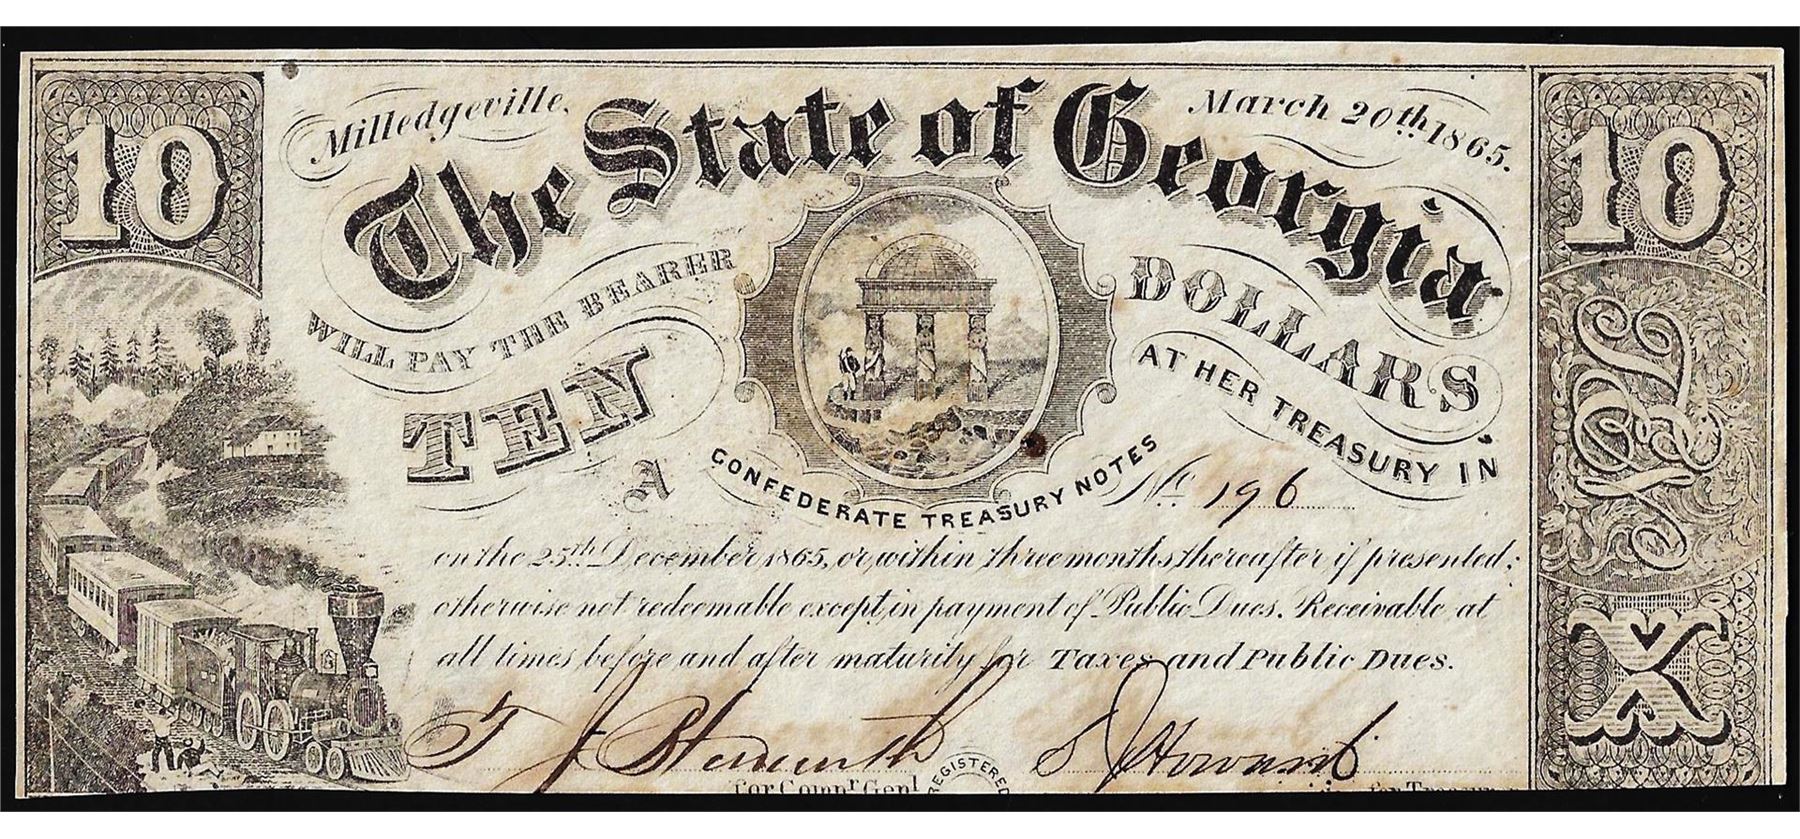 10
Milledgeville,
March 20th 1865.
10
The State of Georgia
WILL PAY THE BEARER
TEN
DOLLARS
AT HER TREASURY IN
CONFEDERATE TREASURY NOTES
A
No 196
on the 25th December 1865, or within three months thereafter if presented;
otherwise not redeemable except in payment of Public Dues. Receivable at
all times before and after maturity for Taxes and Public Dues.
X
for Compr Genl
REGISTERED
for